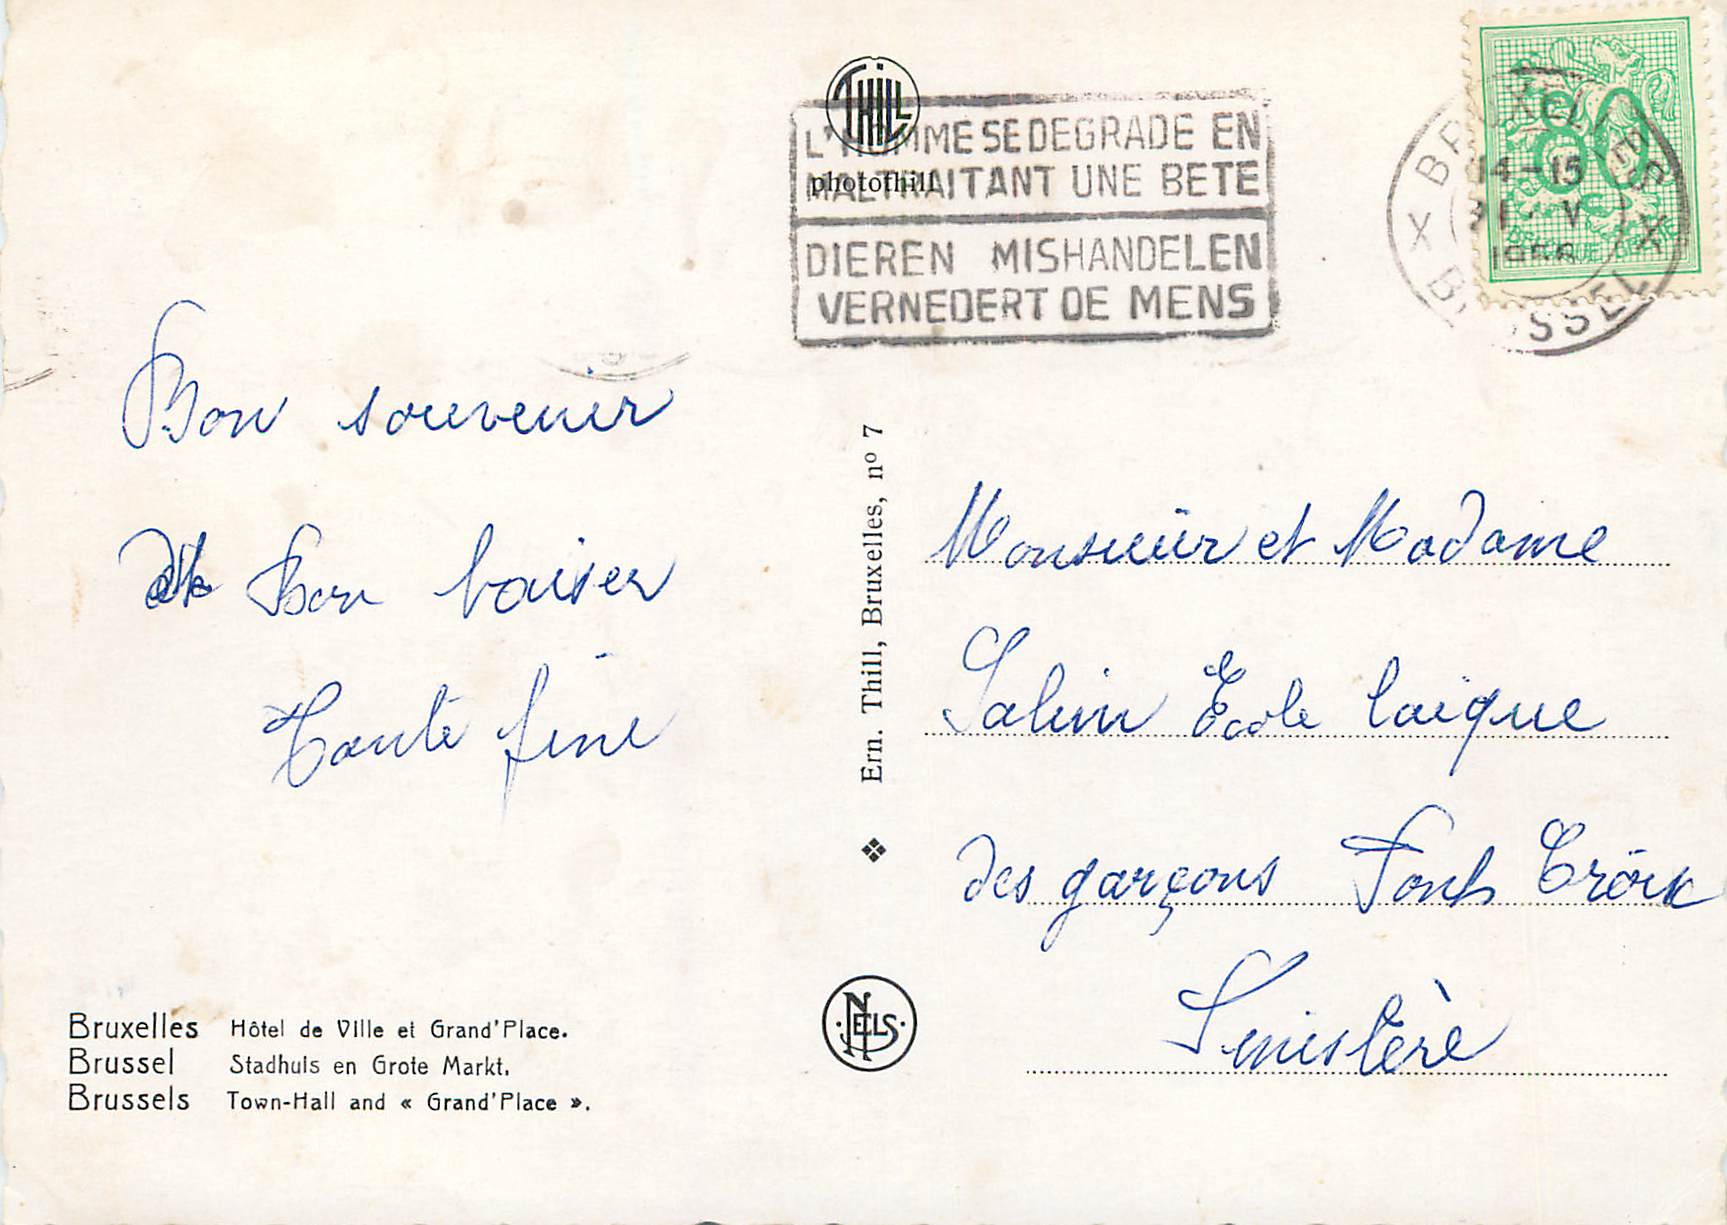 THILL
photothill
L'HOMME SE DEGRADE EN
MALTRAITANT UNE BETE
DIEREN MISHANDELEN
VERNEDERT DE MENS
BRUXELLES
X X
14-15
V
BRUSSEL
80
BELGIQUE-BELGIE
Bon souvenir
Bon baiser
Tante fine
Ern. Thill, Bruxelles, nº 7
Monsieur et Madame
Salin Ecole laique
des garçons Pont Croix
Finistère
NELS
Bruxelles Hôtel de Ville et Grand'Place.
Brussel Stadhuis en Grote Markt.
Brussels Town-Hall and « Grand'Place ».